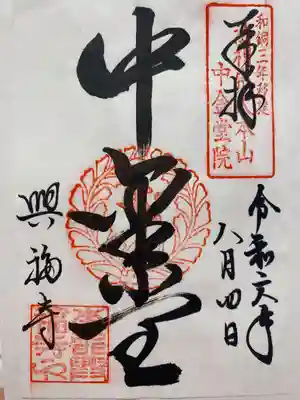 奉拝
令和六年
八月四日
中金堂
興福寺
和銅三年創建
本山
中金堂院